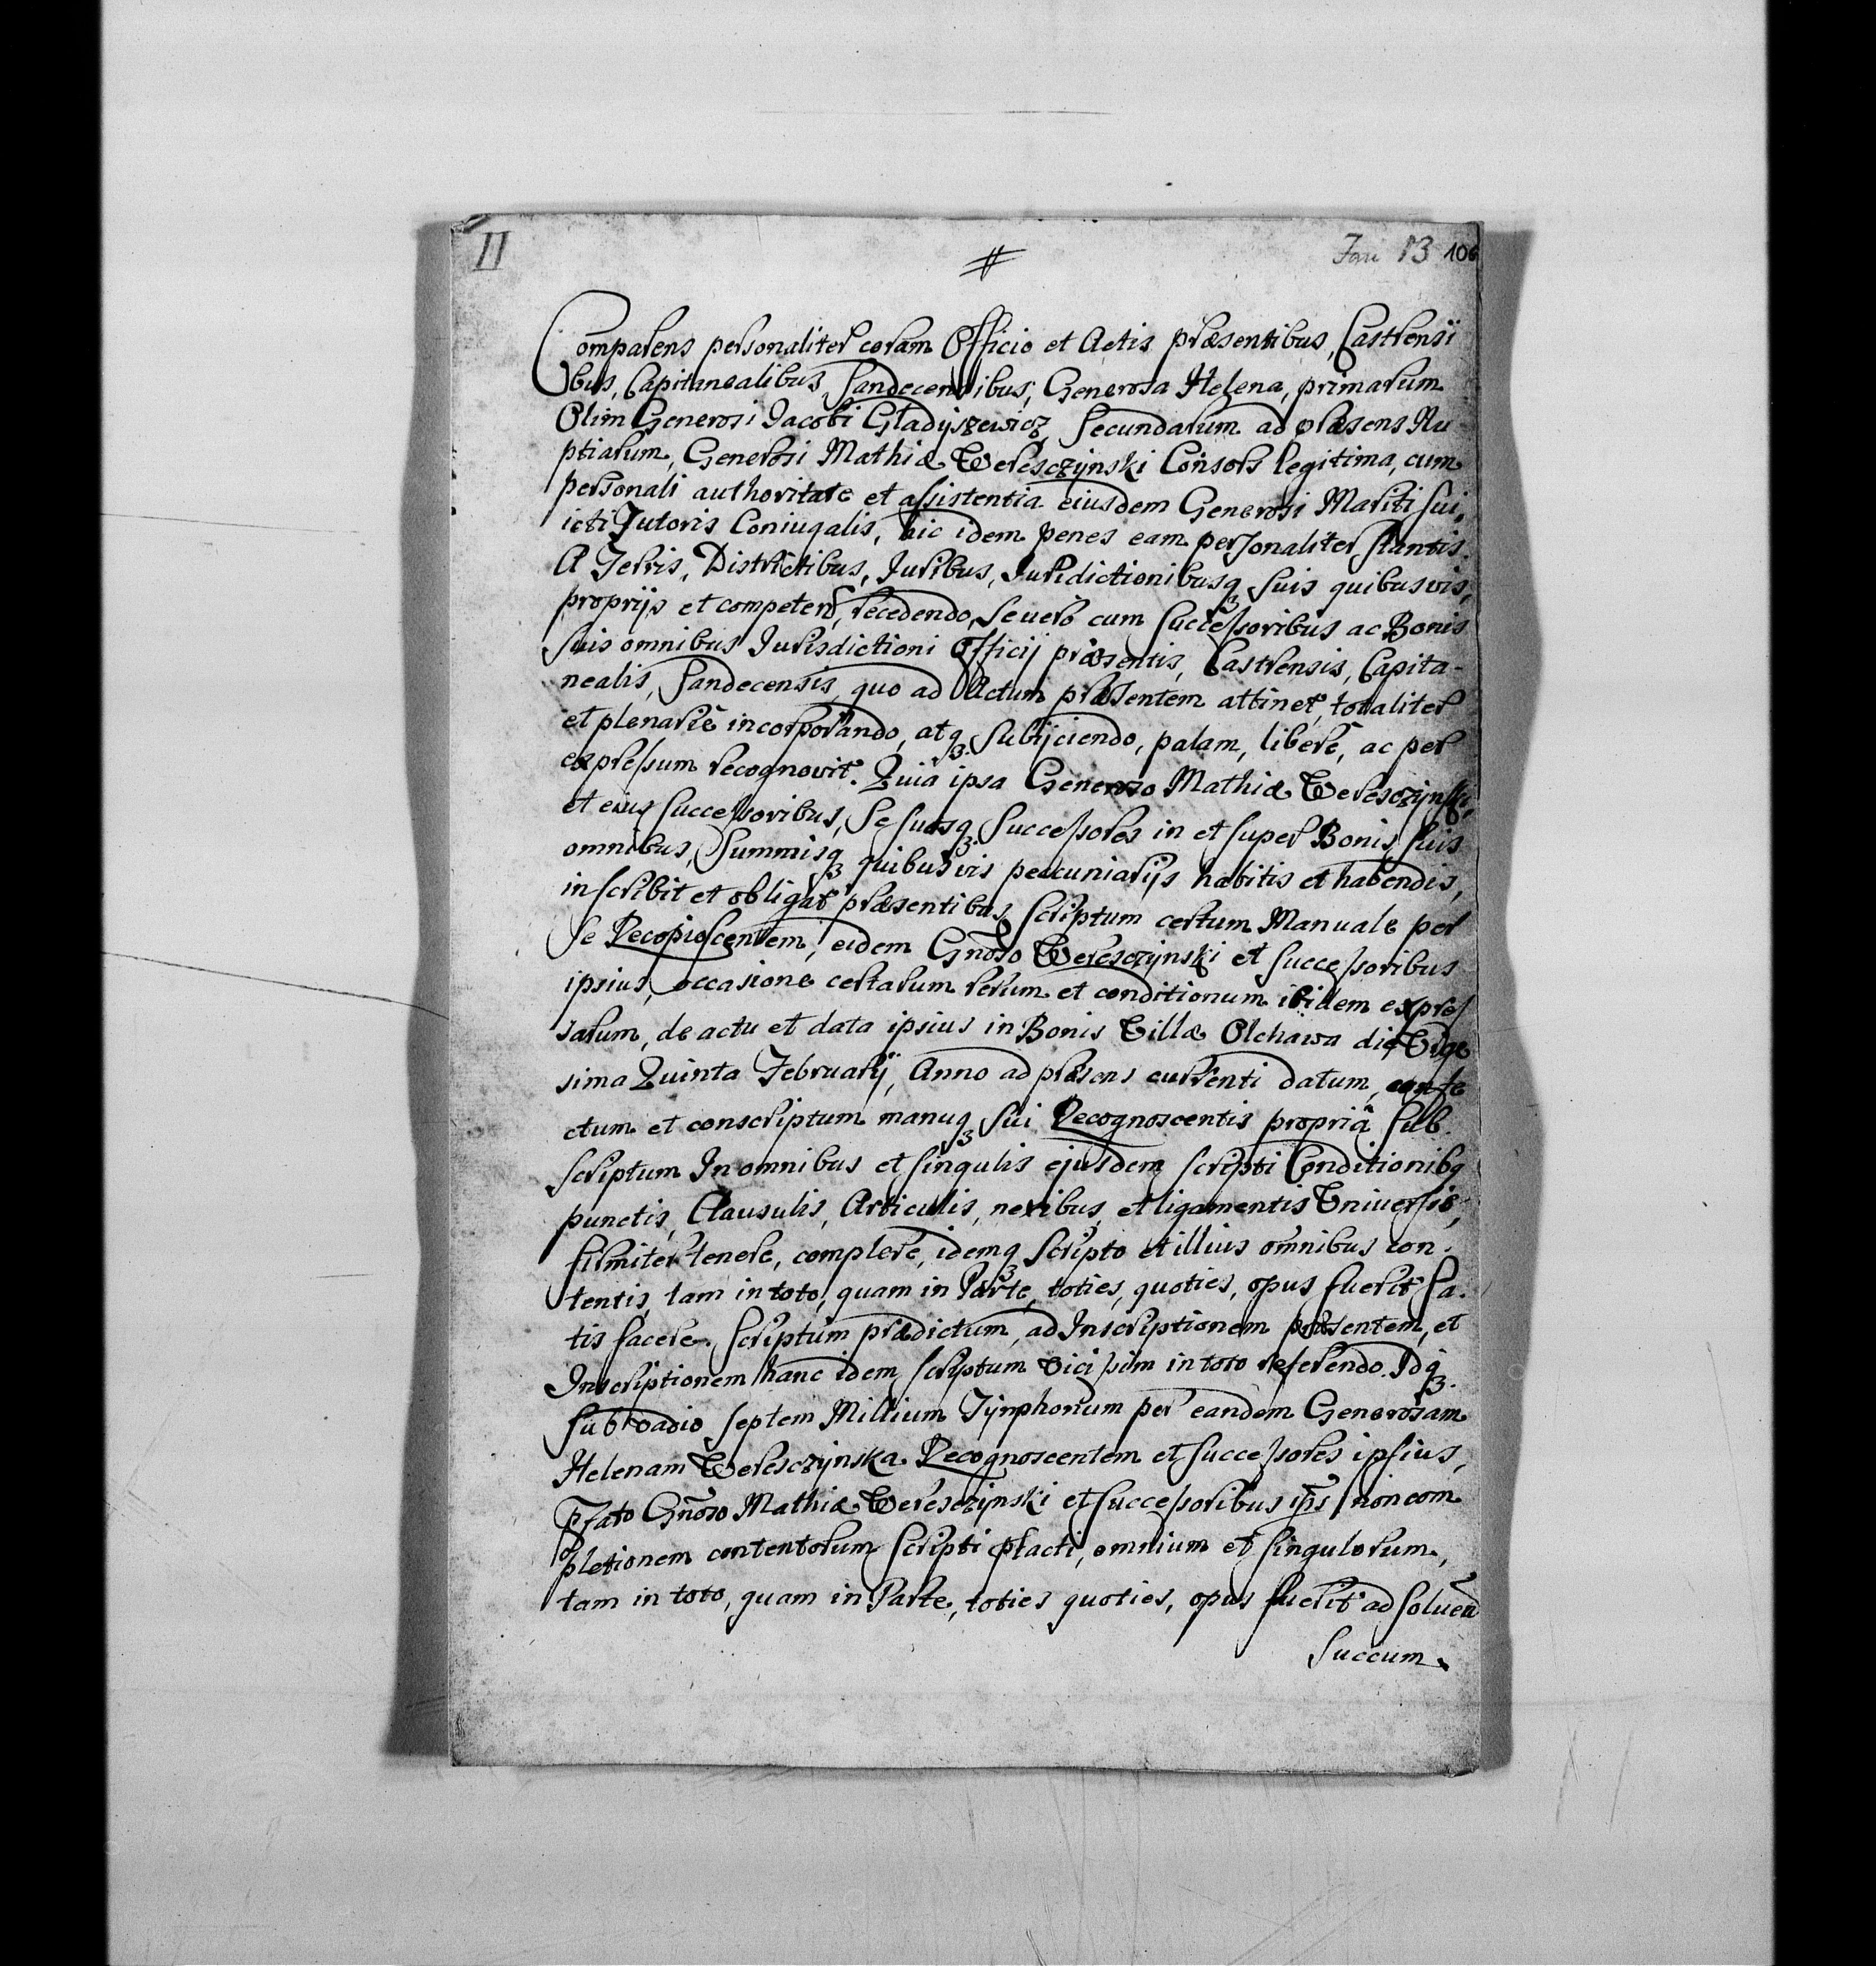 II # 13 106
Comparens personaliter coram Officio et Actis præsentibus, Castrensi
bus, Capitanealibus, Sandecensibus, Generosa Helena, primarum
Olim Generosi Jacobi Gładyszewicz, Secundarum ad præsens Nu
ptiarum, Generosi Mathiæ Wereszczynski Consors legitima, cum
personali authoritate et assistentia eiusdem Generosi Mariti sui,
icti Tutoris Coniugalis, hic idem penes eam personaliter stantis.
A Terris, Districtibus, Juribus, Jurisdictionibusq3 suis quibusvis,
proprijs et competen, recedendo, se vero cum successoribus ac Bonis
suis omnibus Jurisdictioni Officij præsentis, Castrensis, Capita-
nealis, Sandecensis, quo ad Actum præsentem attinet, totaliter
et plenariè incorporando, atq3. subijciendo, palam, liberè, ac per
expressum recognovit. Quia ipsa Generoso Mathiæ Weresczynski,
et eius successoribus, se suosq3 successores in et super Bonis suis
omnibus, Summisq3 quibusvis pecuniarijs habitis et habendis,
inscribit et obligat præsentibus, Scriptum certum Manuale per
se Recognoscentem, eidem Gnoso Weresczynski et successoribus
ipsius, occasione certarum rerum et conditionum ibidem expres
sarum, de actu et data ipsius in Bonis Villæ Olchawa die Vige
sima Quinta February, Anno ad præsens currenti datum, confe
ctum et conscriptum manuq3 sui Recognoscentis propriâ sub
scriptum In omnibus et singulis ejusdem scripti Conditionibq
punctis, Clausulis, Articulis, nexibus, et ligamentis Universis,
firmiter tenere, complere, idemq3 scripto et illius omnibus con.
tentis, tam in toto, quam in Parte, toties, quoties, opus fuerit sa.
tis facere. Scriptum prædictum, ad Inscriptionem præsentem, et
Inscriptionem hanc idem scriptum vicissim in toto referendo. Idq3.
sub vadio septem Millium Tynphonum per eandem Generosam
Helenam Weresczynska Recognoscentem et successores ipsius,
Pfato Gnoso Mathiæ Weresczynski et successoribus ips noncom
pletionem contentorum scripti pfacti, omnium et singulorum,
tam in toto, quam in Parte, toties quoties, opus fuerit ad soluen
succum.